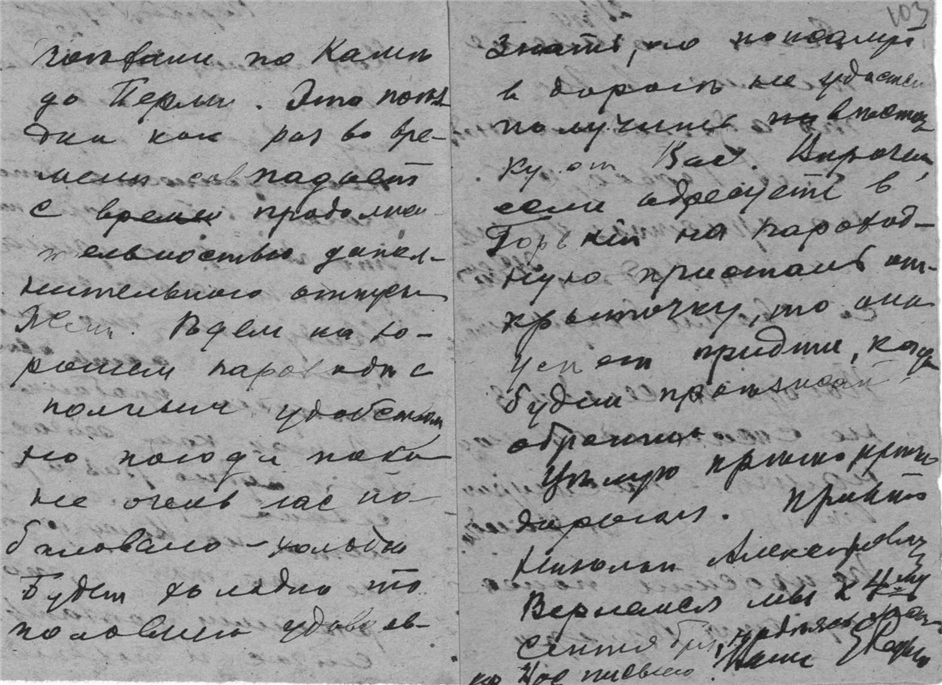 по Каме
до Перми. Эта поезд
дка как раз во вре-
мени совпадает
с время продолжи
тельностью допол-
нительного отпуска
Жени. Едем на хо-
рошем пароходе с
полным удобством
но погода пока
не очень нас по-
баловало – холодно
Будет холодно то
половина удовол-
103
Знаете, что пожалуй
в дороге не удастся
получить
ку от Вас. Впрочем,
если адресуете в
Горький на пароход-
ную пристань от-
крыточку, то она
успеет придти, когда
будем проезжать
обратно.
Целую крепко
дорогая. Привет
Николаю Александровичу
Вернемся мы к 4му
сентября,
письмо. Ваши